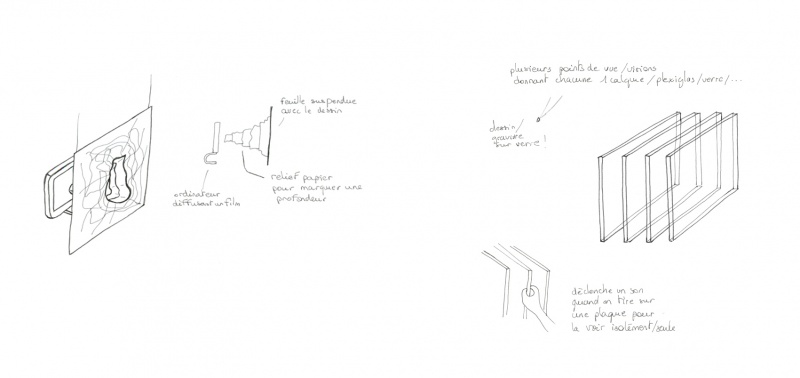 feuille suspendue
avec le dessin
relief papier
pour marquer une
profondeur
ordinateur
diffusant un film
plusieurs points de vue / visions
donnant chacune 1 calque / plexiglas / verre / ...
dessin /
gravure
sur verre !
déclenche un son
quand on tire sur
une plaque pour
la voir isolément/seule